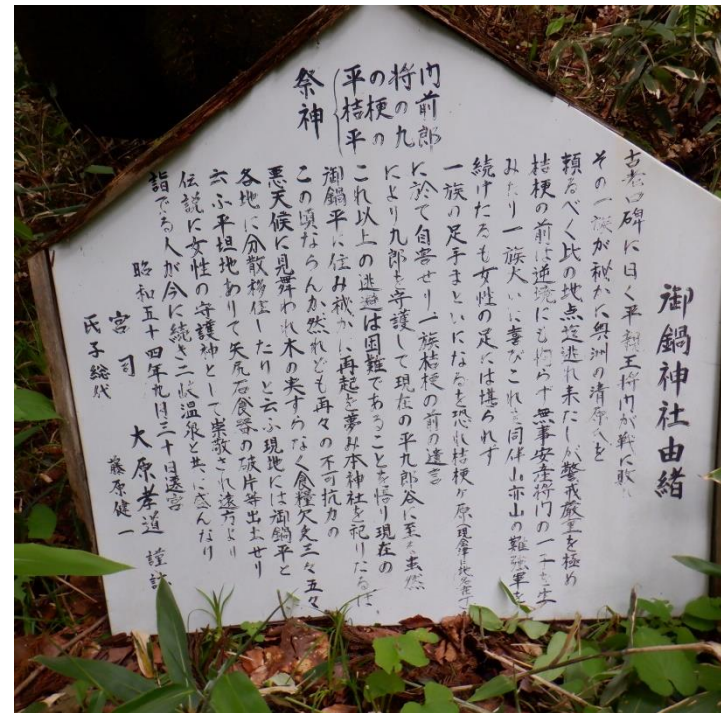 御鍋神社由緒
古老口碑に曰く平親王将門が戦に敗れ
その一族が秘かに奥洲の清原氏を
頼るべく比の地点迄逃れ来たしが警戒厳重を極め
桔梗の前は逆境にも拘らず無事安産将門の一子を生
みたり一族大いに喜びこれを同伴山亦山の難強軍を
続けたるも女性の足には堪られず
一族の足手まといになるを恐れ桔梗ヶ原
に於て自害せり一族桔梗の前の遺言
により九郎を守護して現在の平九郎谷に至る
これ以上の逃避は困難であることを悟り現在の
御鍋平に住み秘かに再起を夢み本神社を祀りたるは、
この頃ならんか然れども再々の不可抗力の
悪天候に見舞われ木の実すらなく食糧欠乏三々五々
各地に分散移住したりと云ふ現地には御鍋平と
云ふ平坦地ありて矢尻石食器の破片等出土せり
伝説に女性の守護神として崇敬され遠方より
詣でる人が今に続き二岐温泉と共に盛んなり
昭和五十四年九月三十日遷宮
宮司 大原孝道 謹誌
氏子総代 藤原健一
祭神
平の将門
桔梗の前
平の九郎